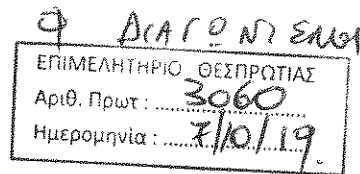 Φ ΔΙΑΓΩΝΙΣΜΟΙ
ΕΠΙΜΕΛΗΤΗΡΙΟ ΘΕΣΠΡΩΤΙΑΣ
Αριθ. Πρωτ : ........3060........
Ημερομηνία : .....7/10/19.